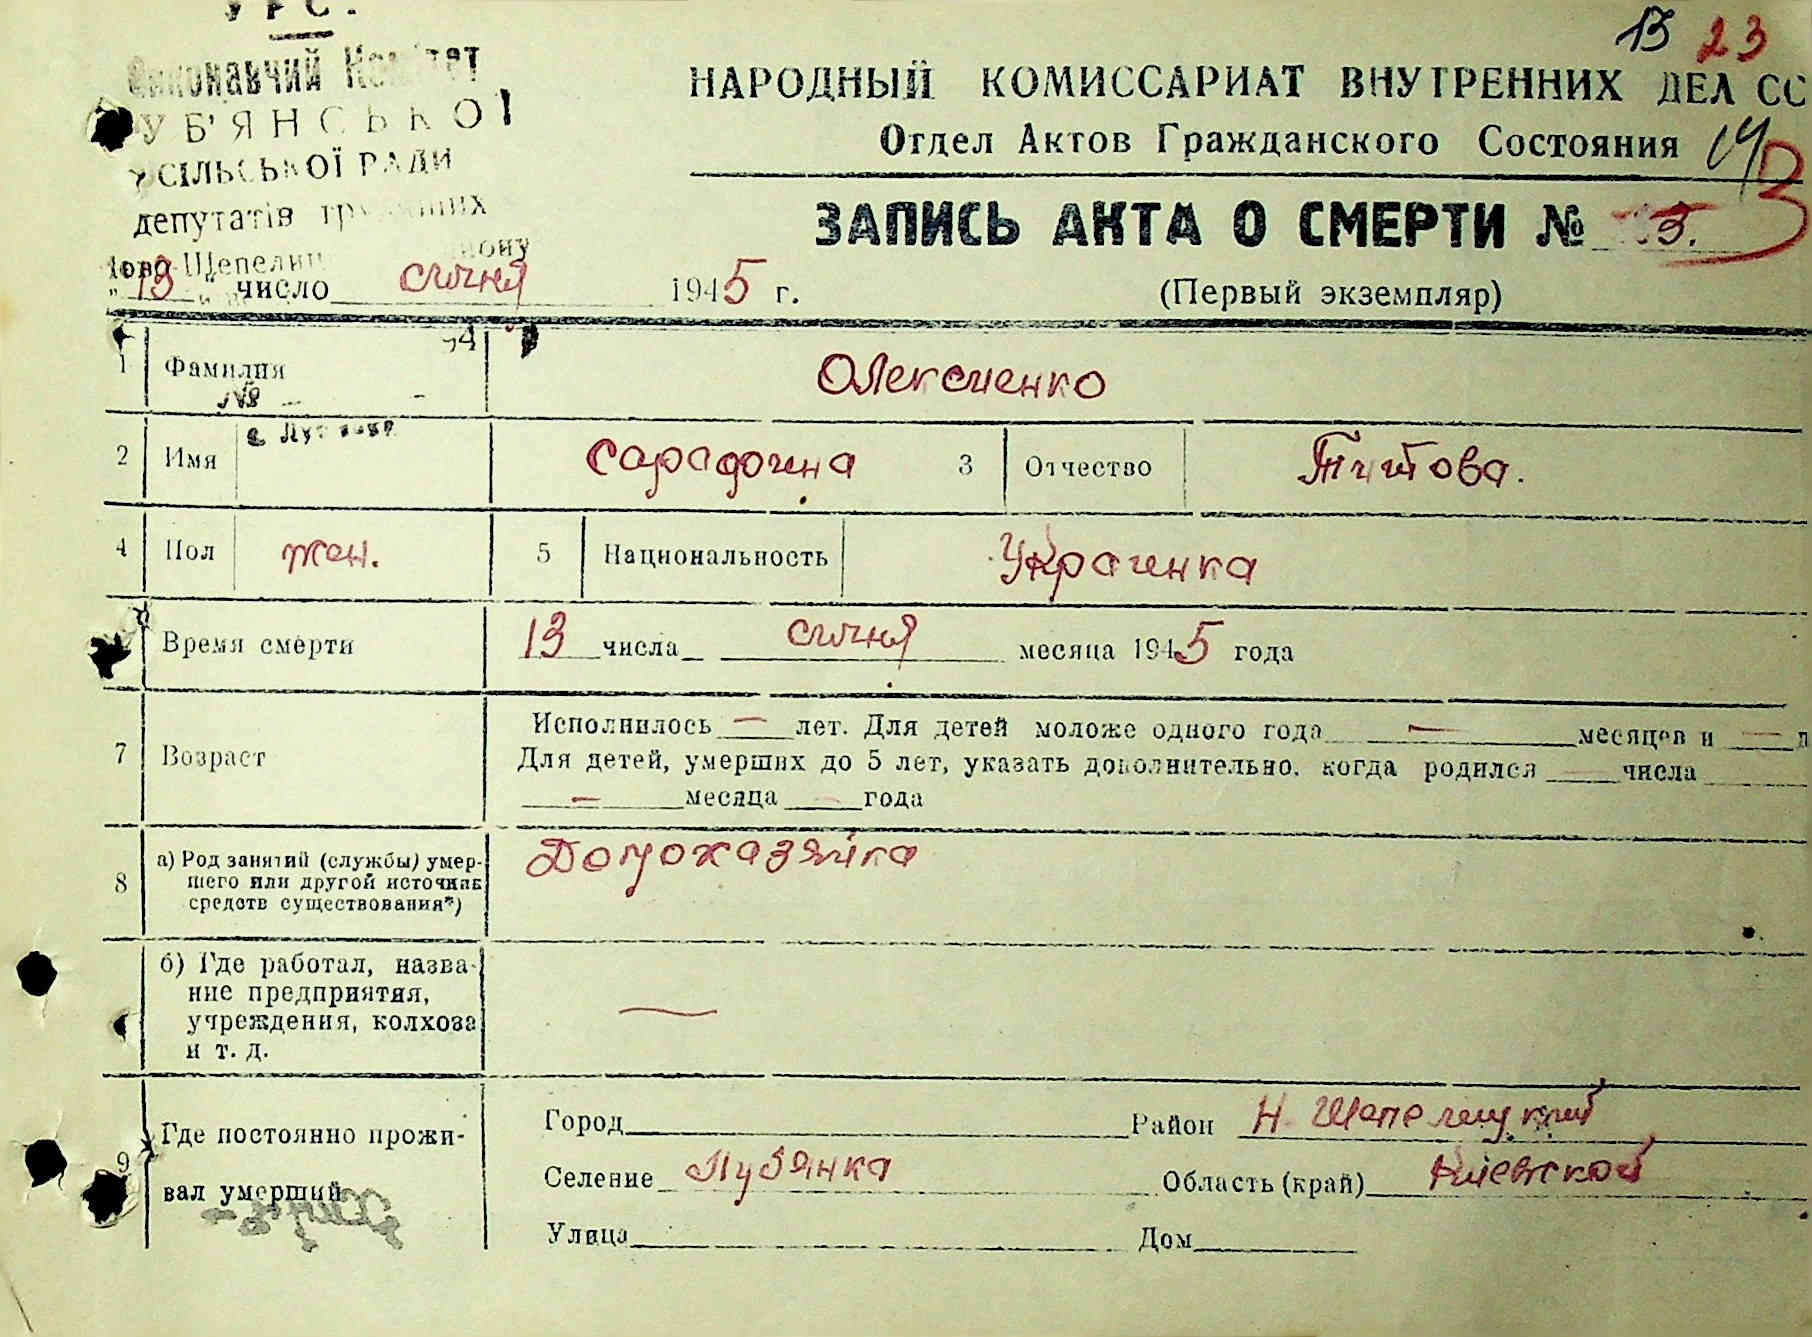 УРС.
Виконавчий Комітет
УБ'ЯНСЬКОЇ
СІЛЬСЬКОЇ РАДИ
депутатів
Ново-Шепелиц ону
13 23
НАРОДНЫЙ КОМИССАРИАТ ВНУТРЕННИХ ДЕЛ СС
Отдел Актов Гражданского Состояния
ЗАПИСЬ АКТА О СМЕРТИ № 3.
„13“ число січня 1945 г.
(Первый экземпляр)
1 Фамилия Олексиенко
№
2 Имя Сарафоина 3 Отчество Титова.
4 Пол жен. 5 Национальность Украинка
Время смерти 13 числа січня месяца 1945 года
7 Возраст Исполнилось — лет. Для детей моложе одного года — месяцев и — д
Для детей, умерших до 5 лет, указать дополнительно, когда родился числа
— месяца — года
8 а) Род занятий (службы) умер-
шего или другой источник
средств существования*) Домохазяйка
б) Где работал, назва-
ние предприятия,
учреждения, колхоза
и т. д. —
9 Где постоянно прожи-
вал умерший
Город Район Н. Шепелицкий
Селение Лубянка Область (край) Киевской
Улица Дом